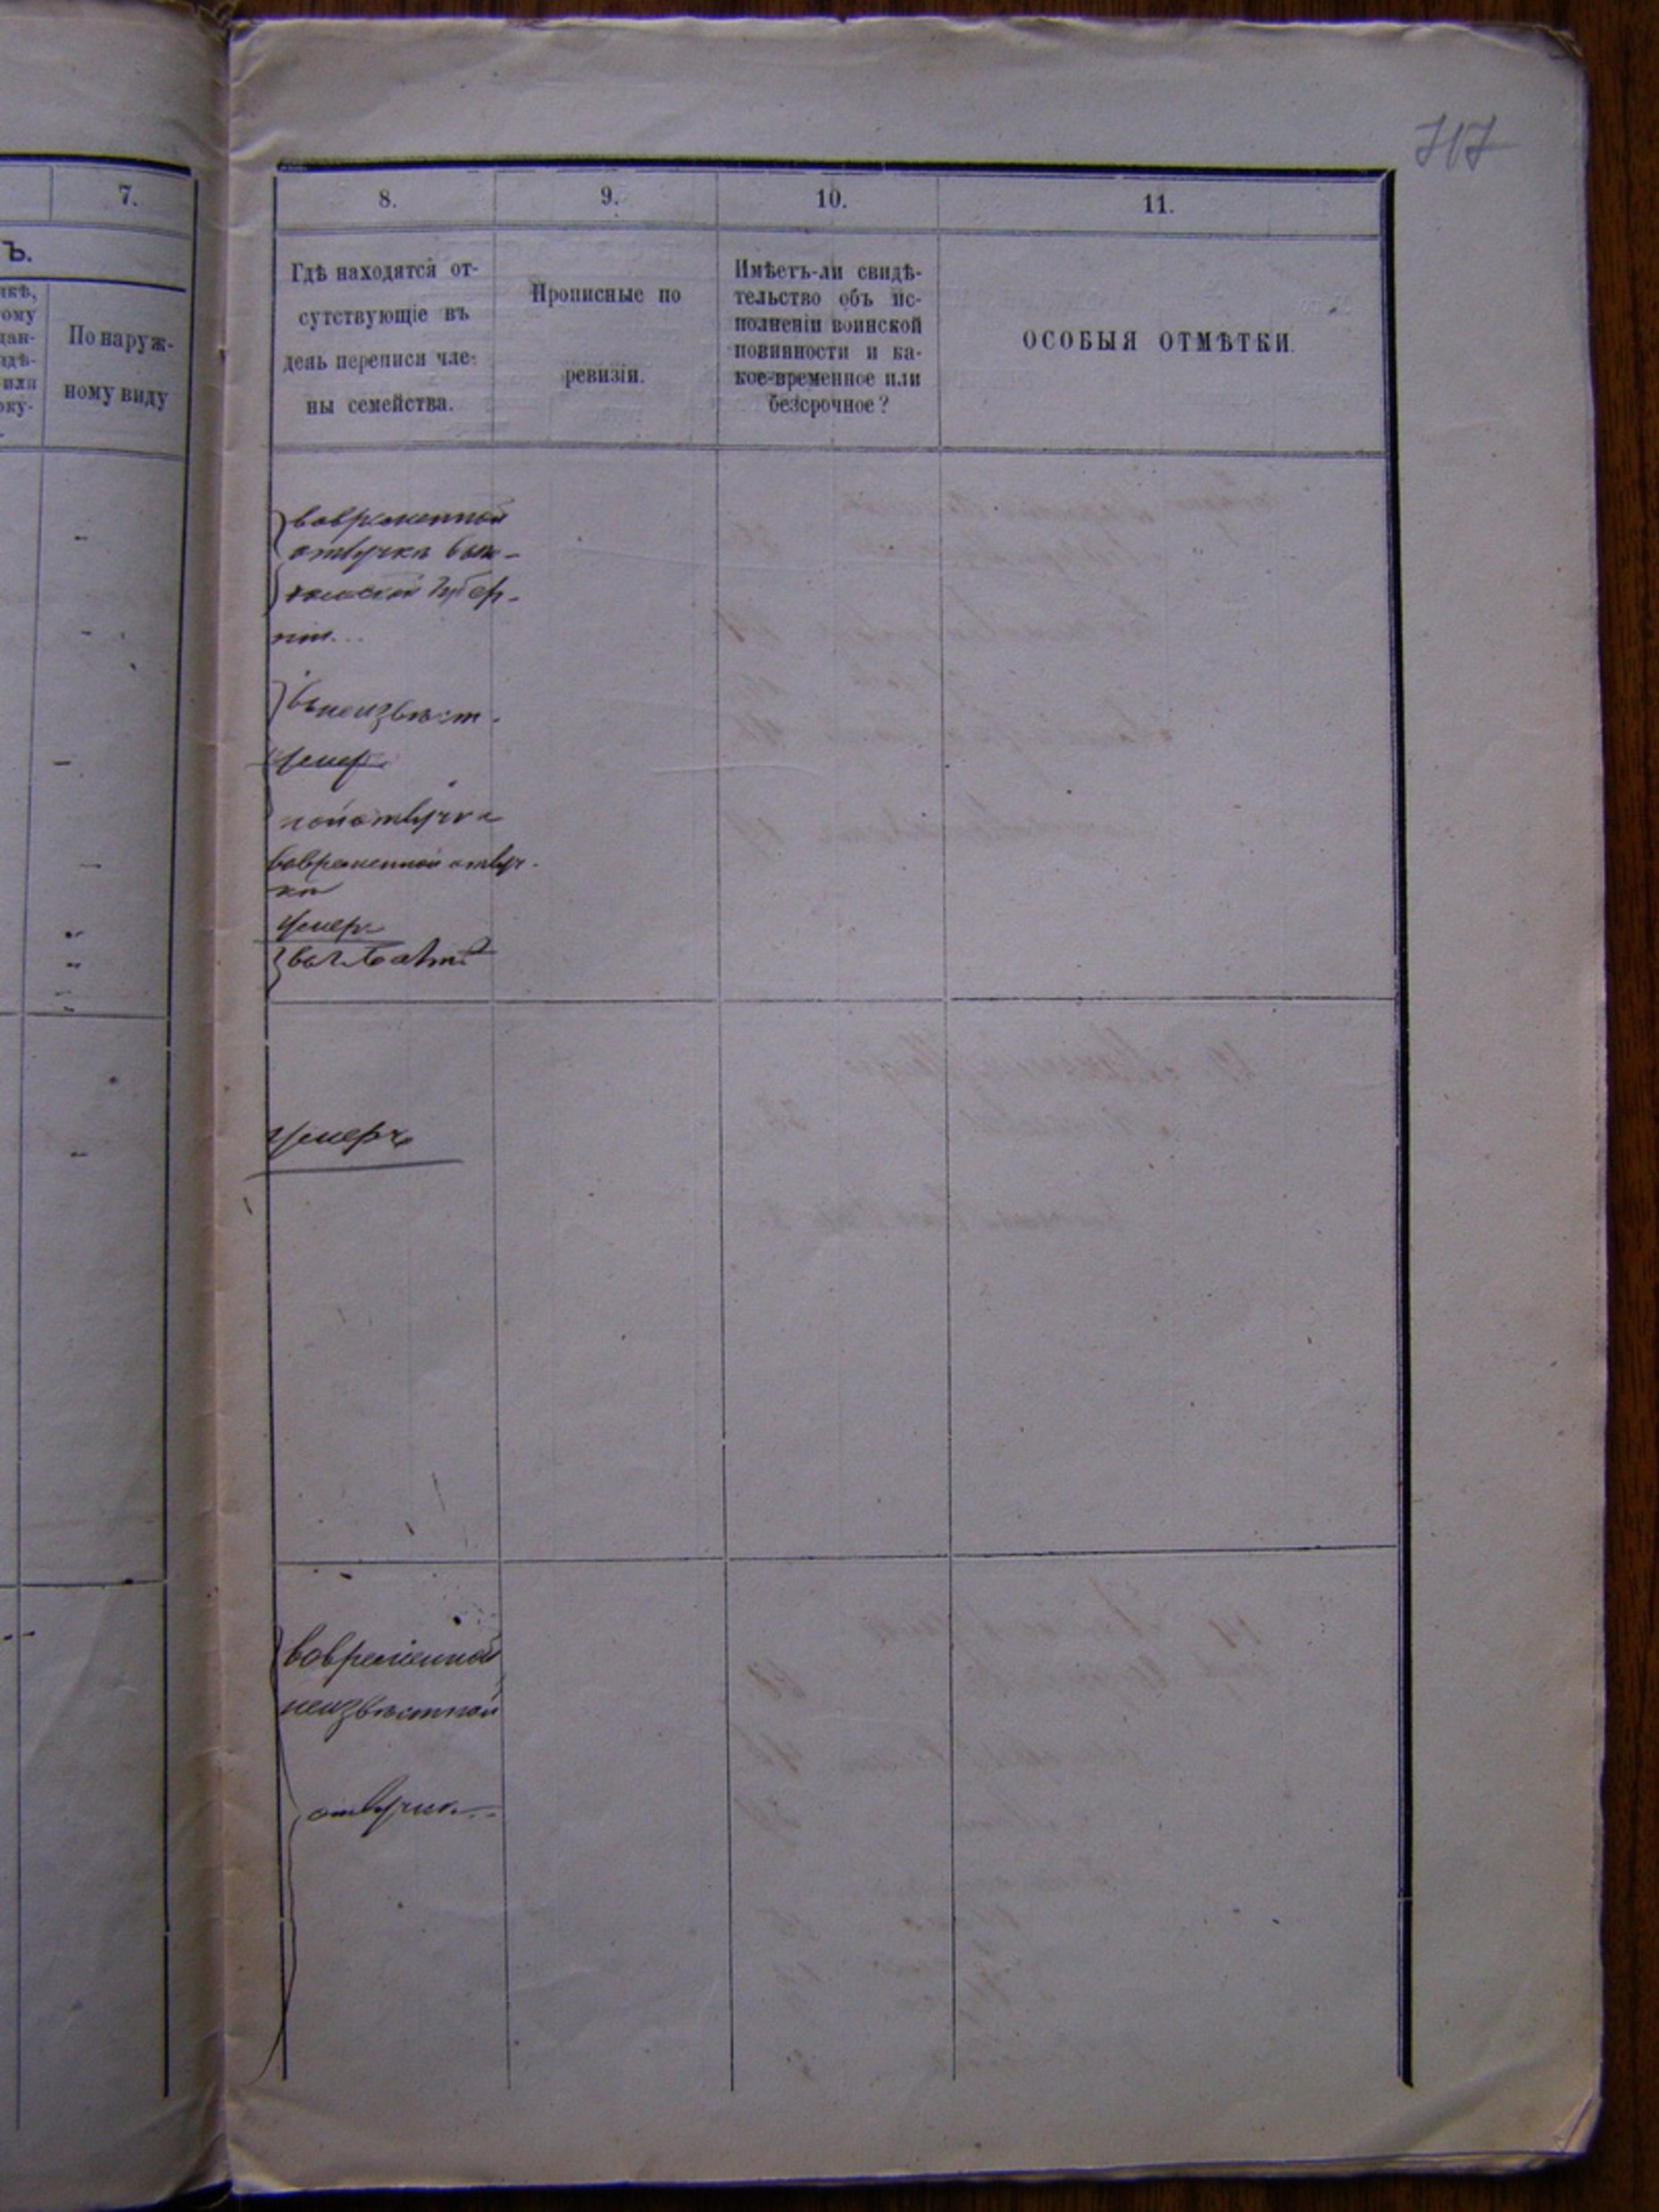 717
7.
Ъ.
По наруж-
ному виду
8.
9.
10.
11.
Гдѣ находятся от-
сутствующіе въ
день переписи чле-
ны семейства.
Прописные по
ревизіи.
Имѣетъ-ли свидѣ-
тельство объ ис-
полненіи воинской
повинности и ка-
кое-временное или
безсрочное?
ОСОБЫЯ ОТМѢТКИ.
вовременной
отлучкѣ
губер-
ніи
внеизвѣст-
умеръ
ной отлучкѣ
вовременной отлуч-
кѣ
умеръ
умеръ
вовременной
неизвѣстной
отлучкѣ